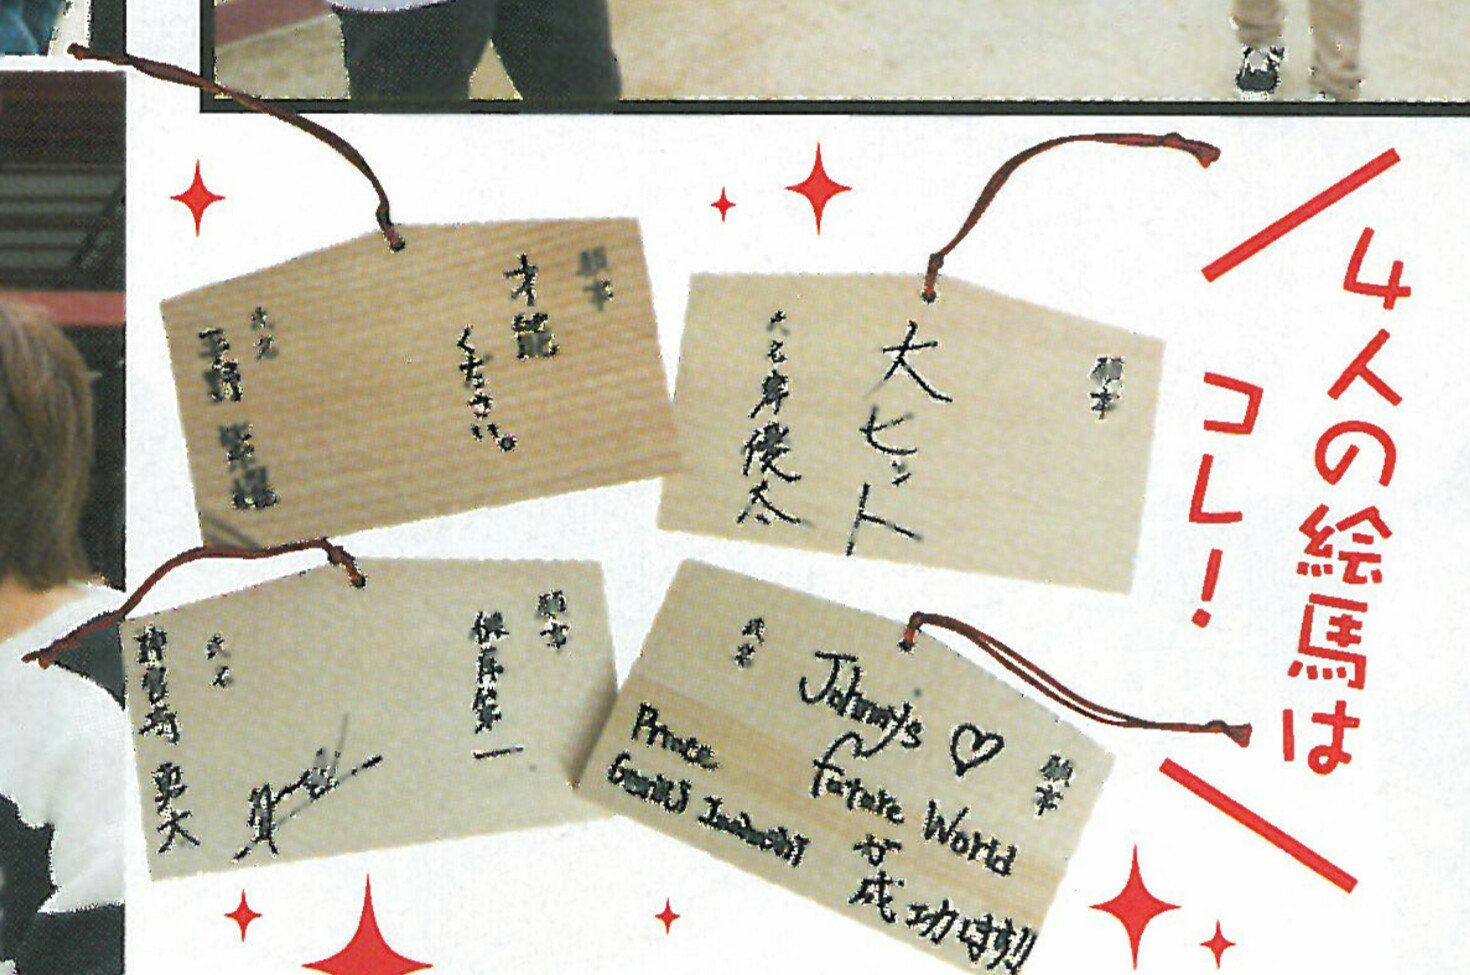 4人の絵馬は
コレ!
願事
大ヒット
氏名 岸優太
願事
才能
ください。
氏名
平野 紫耀
願事
Johnny's ♡
Future World
が
成功
氏名
Prince
願事
第一
氏名
神宮寺 勇太